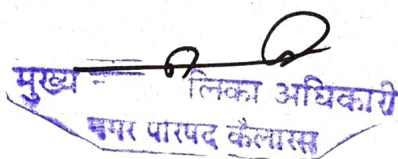 मुख्य लिका अधिकारी
नगर परिषद कैलारस